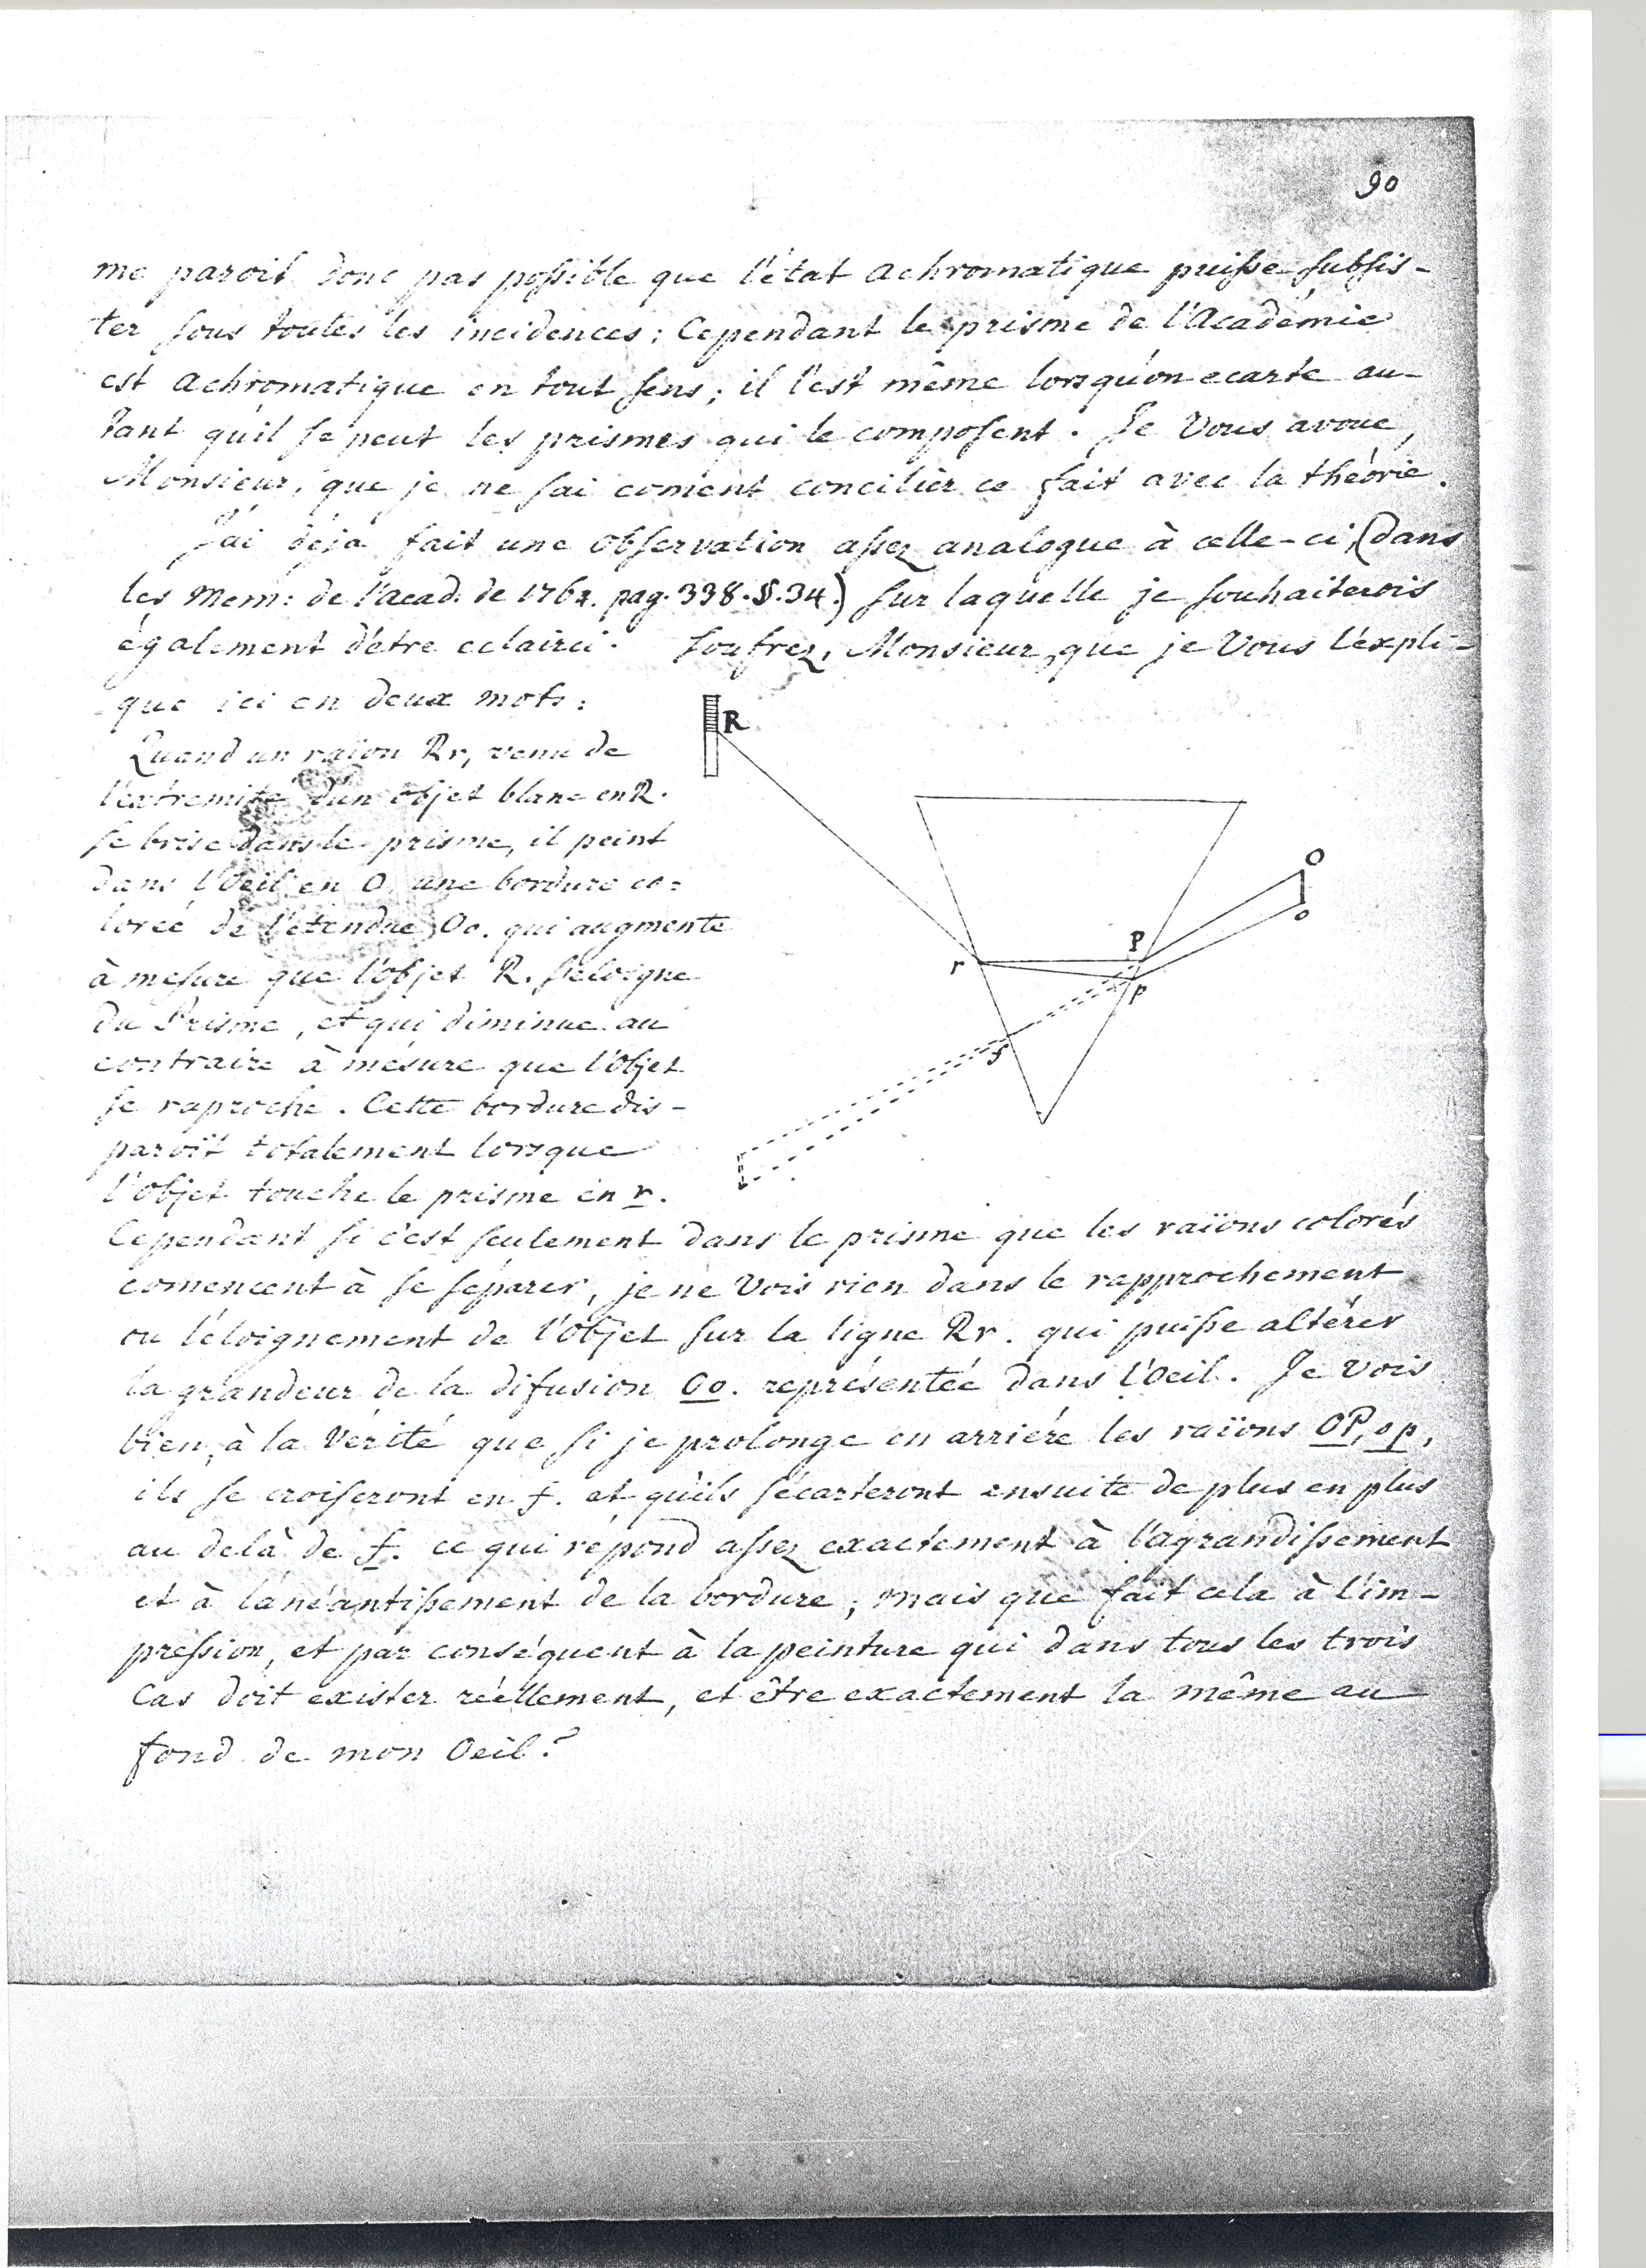 90
me paroit donc pas possible que l'état achromatique puisse subsis-
ter sous toutes les incidences; Cependant le prisme de l'Académie
est achromatique en tout sens; il l'est même lorsqu'on ecarte au-
tant qu'il se peut les prismes qui le composent. Je Vous avoue,
Monsieur, que je ne sai coment concilier ce fait avec la théorie.
J'ai déja fait une observation assez analogue à celle-ci, (dans
les Mem: de l'acad. de 176 . pag. 338. §. 34.) sur laquelle je souhaiterois
également d'être eclairci. Soufrez, Monsieur, que je Vous l'expli-
que ici en deux mots:
R
Quand un raïon Rr, venu de
l'extremité d'un objet blanc en R.
se brise dans le prisme, il peint
dans l'Oeil en O une bordure co=
lorée de l'étendue Oo. qui augmente
à mesure que l'objet R. s'eloigne
du Prisme, et qui diminue au
contraire à mesure que l'Objet
se raproche. Cette bordure dis-
paroît totalement lorsque
l'objet touche le prisme en r.
O
o
P
r
p
f
Cependant si c'est seulement dans le prisme que les raïons colorés
comencent à se séparer, je ne Vois rien dans le rapprochement
ou l'éloignement de l'Objet sur la ligne Rr. qui puisse altérer
la grandeur de la difusion Oo. représentée dans l'Oeil. Je vois
bien, à la Vérité que si je prolonge en arriére les raïons OP, op,
ils se croiseront en f. et qu'ils s'écarteront ensuite de plus en plus
au delà de f. ce qui répond assez exactement à l'agrandissement
et à l'anéantissement de la bordure; mais que fait cela à l'im-
pression, et par conséquent à la peinture qui dans tous les trois
Cas doit exister réellement, et être exactement la même au
fond de mon Oeil?